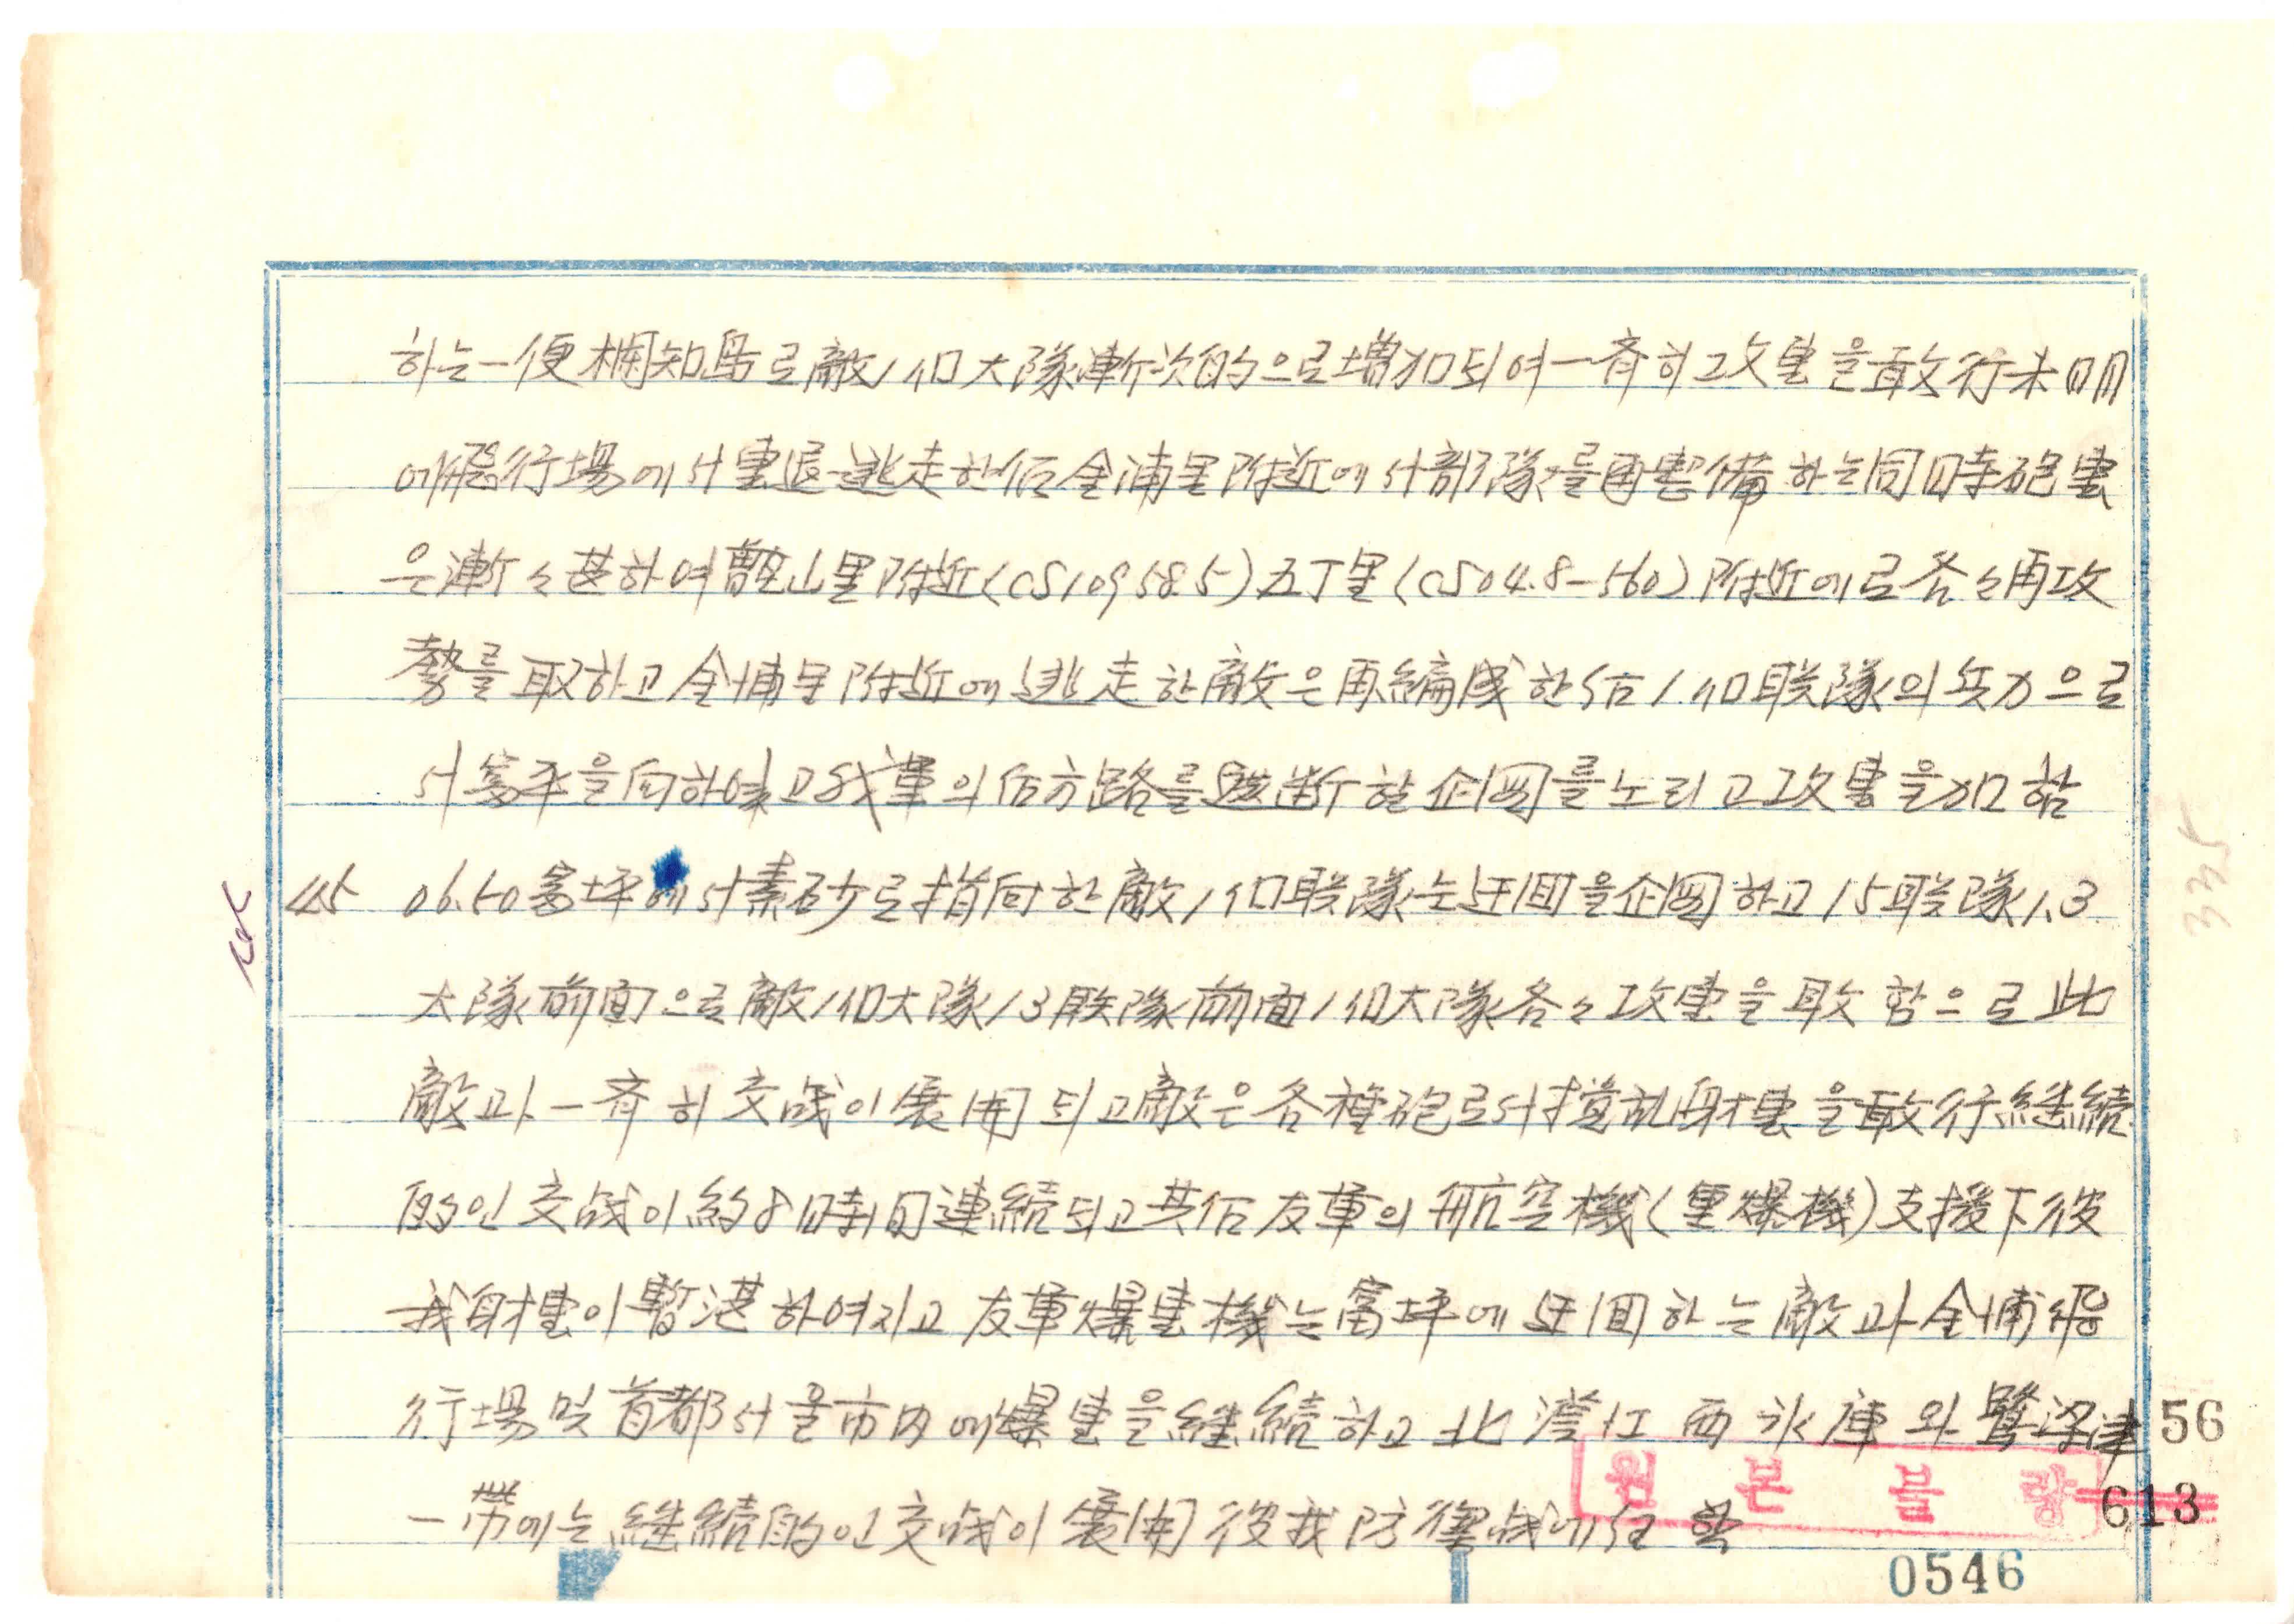 하는一便 栏知島로敵1個大隊漸次的으로增加되여一齊히攻擊을敢行未明
에飛行場에서擊退逃走한后金浦里附近에서部隊를再整備하는同時砲擊
은漸々甚하여 山里附近(CS109585)五丁里(CS04.8-560)附近에로各々再攻
勢를取하고金浦里附近에逃走한敵은再編成한后1個联隊의兵力으로
서富平을向하였고我軍의后方路를遮断할企圖를노리고攻擊을加함
45 06.50富坪에서素砂로指向한敵1個联隊는迂回을企圖하고15联隊1.3
大隊前面으로敵1個大隊13联隊前面1個大隊各々攻擊을敢함으로此
敵과一齊히交战이展開되고敵은各種砲로서攪乱射擊을敢行継続
的인交战이約8時间連続되고其后友軍의航空機(重爆機)支援下彼
我射擊이暫湛하여지고友軍爆擊機는富坪에迂回하는敵과金浦飛
行場및首都서울市內에爆擊을継続하고北漢江西氷庫와鷺梁津
一帶에는継続的인交战이展開彼我防禦战에
335
56
원본불량
613
0546